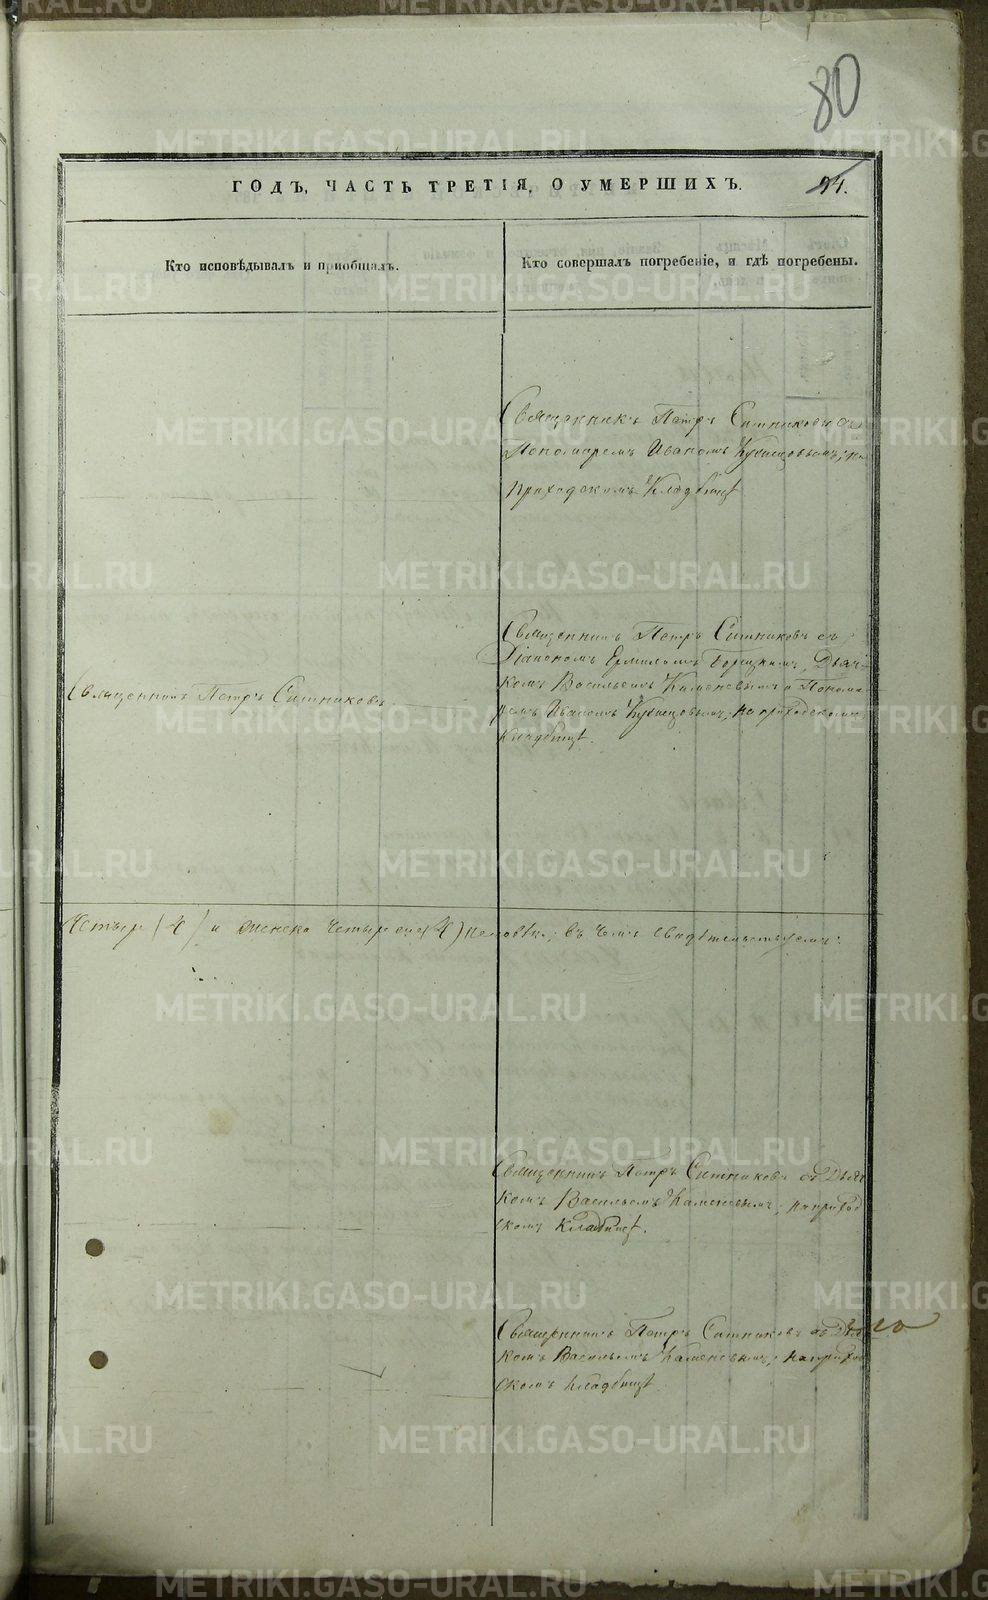 80
ГОДЪ, ЧАСТЬ ТРЕТІЯ, О УМЕРШИХЪ.
94.
Кто исповѣдывалъ и пріобщалъ.
Кто совершалъ погребеніе, и гдѣ погребены.
Священникъ Петръ Ситниковъ съ
Пономаремъ Иваномъ Кузнецовымъ, на
приходскомъ кладбищѣ
Священникъ Петръ Ситниковъ
Священникъ Петръ Ситниковъ съ
Діакономъ Ермиломъ Дьяч-
комъ Васильемъ Каменевымъ и Понома-
ремъ Иваномъ Кузнецовымъ, на приходскомъ
кладбищѣ.
Четыре (4) и женска четыре (4) человѣка; въ чемъ свидѣтельствуемъ:
Священникъ Петръ Ситниковъ съ Дьяч-
комъ Васильемъ Каменевымъ, на приход-
скомъ кладбищѣ.
Священникъ Петръ Ситниковъ съ Дьяч-
комъ Васильемъ Каменевымъ, на приход-
скомъ кладбищѣ
METRIKI.GASO-URAL.RU